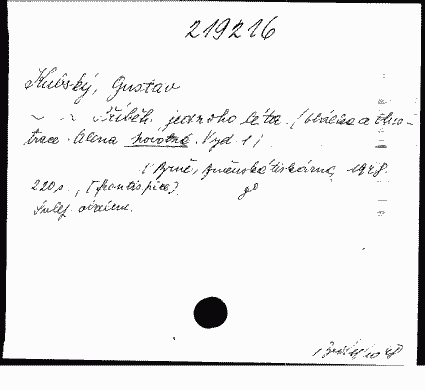 219216
Kubský, Gustav
Příběh jednoho léta. (Obálka a ilus-
trace Alena Novotná. Vyd. 1)
(Brně, Brněnská tiskárna, 1948.
220 s., [frontispice] 8°